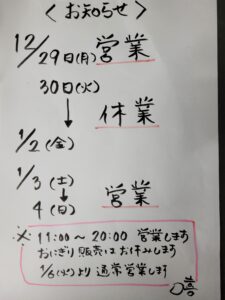 ＜お知らせ＞
12/29日(月) 営業
30日(火)
↓ 休業
1/2(金)
1/3(土)
↓ 営業
4(日)
※ 11:00〜20:00 営業します
おにぎり販売はお休みします
1/6(火)より通常営業します